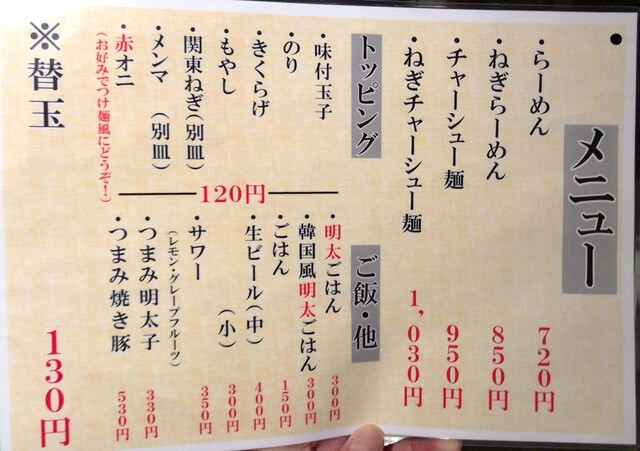 メニュー
・らーめん 720円
・ねぎらーめん 850円
・チャーシュー麺 950円
・ねぎチャーシュー麺 1,030円
トッピング
・味付玉子
・のり
・きくらげ
・もやし
・関東ねぎ(別皿)
・メンマ (別皿)
・赤オニ
(お好みでつけ麺風にどうぞ!)
120円
ご飯・他
・明太ごはん 300円
・韓国風明太ごはん 300円
・ごはん 150円
・生ビール(中) 400円
(小) 300円
・サワー 350円
(レモン・グレープフルーツ)
・つまみ明太子 330円
・つまみ焼き豚 530円
※替玉 130円